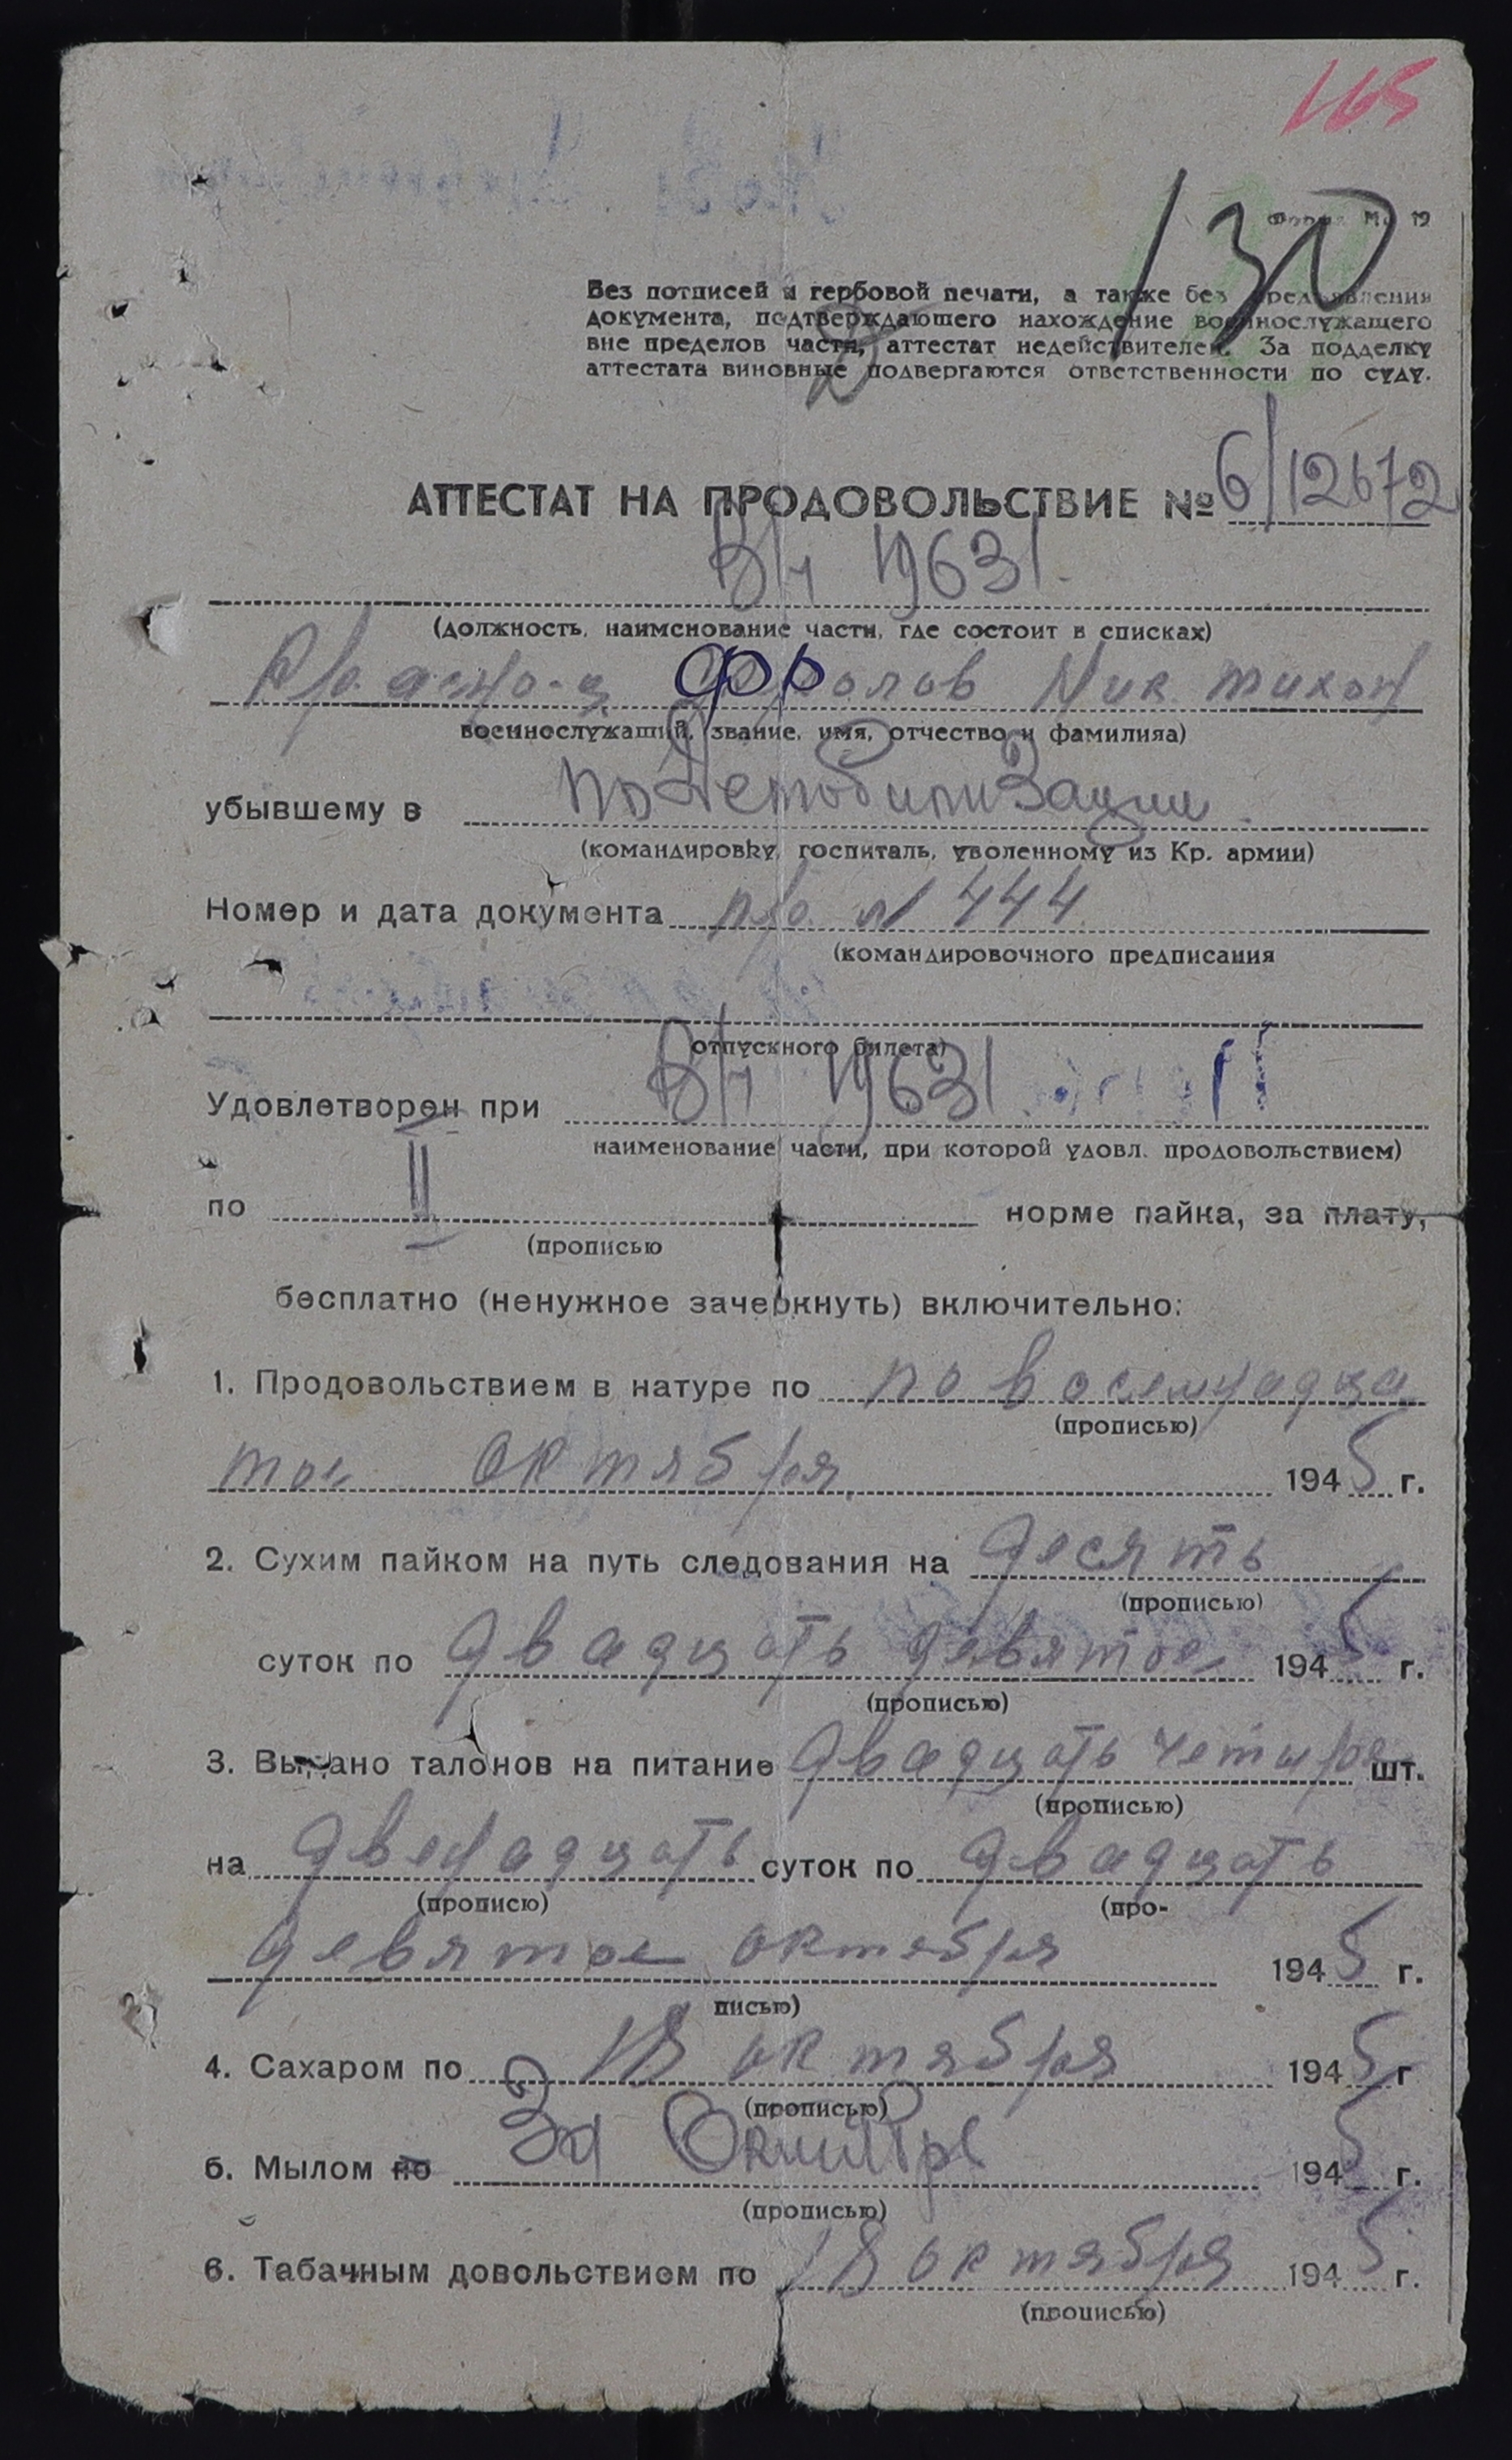 165
130
Форма № 19
Без потписей и гербовой печати, а также без предъявления
документа, подтверждающего нахождение военнослужащего
вне пределов части, аттестат недействителен. За подделку
аттестата виновные подвергаются ответственности по суду.
АТТЕСТАТ НА ПРОДОВОЛЬСТВИЕ № 6/12672
В/ч 19631
(должность, наименование части, где состоит в списках)
Фролов Ник Тихон
военнослужащий, звание, имя, отчество и фамилияа)
убывшему в по Демобилизации
(командировку, госпиталь, уволенному из Кр. армии)
Номер и дата документа пр. № 444
(командировочного предписания
отпускного билета)
Удовлетворен при В/ч 19631
наименование части, при которой удовл. продовольствием)
по II норме пайка, за плату,
(прописью
бесплатно (ненужное зачеркнуть) включительно:
1. Продовольствием в натуре по по восемнадца
(прописью)
тое октября 1945 г.
2. Сухим пайком на путь следования на десять
(прописью)
суток по двадцать девятое 1945 г.
(прописью)
3. Выдано талонов на питание двадцать четыре шт.
(прописью)
на двенадцать суток по двадцать
(прописю) (про-
девятое октября 1945 г.
писью)
4. Сахаром по 18 октября 1945 г
(прописью)
5. Мылом по За Октябрь 1945 г.
(прописью)
6. Табачным довольствием по 18 октября 1945 г.
(прописью)